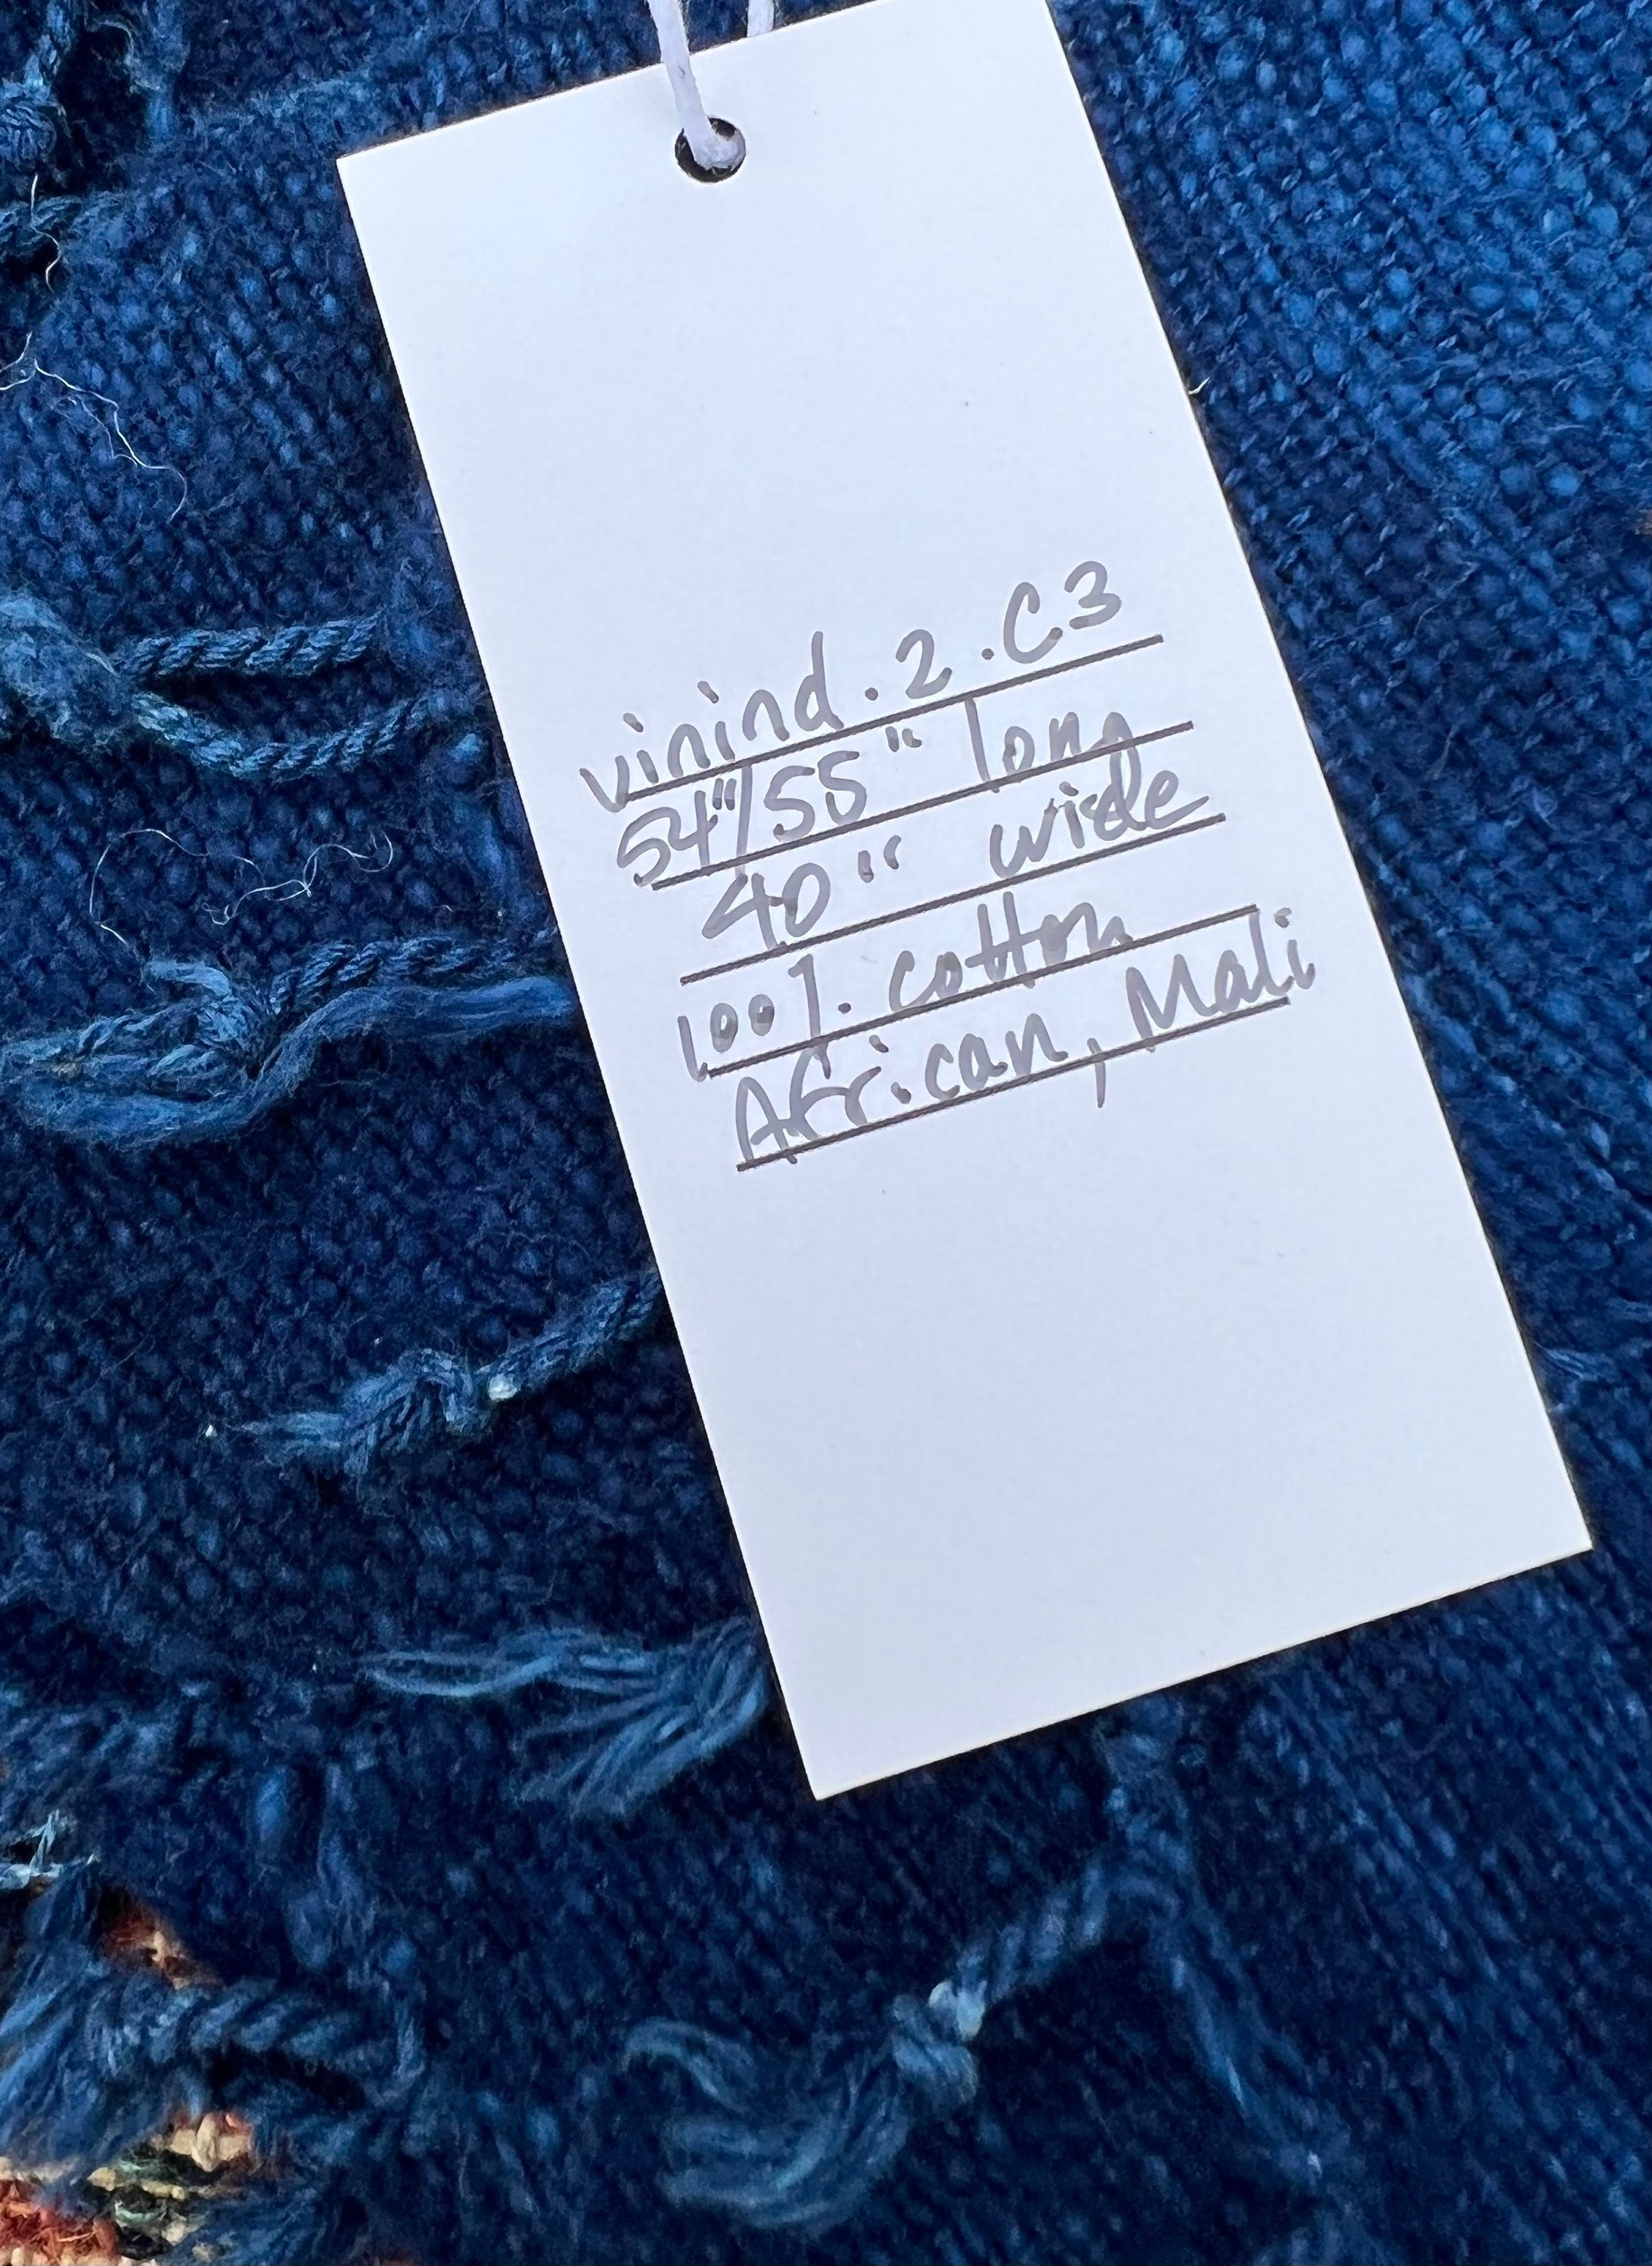 vinind.2.C3
54"/55" long
40" wide
100%. cotton
African, Mali